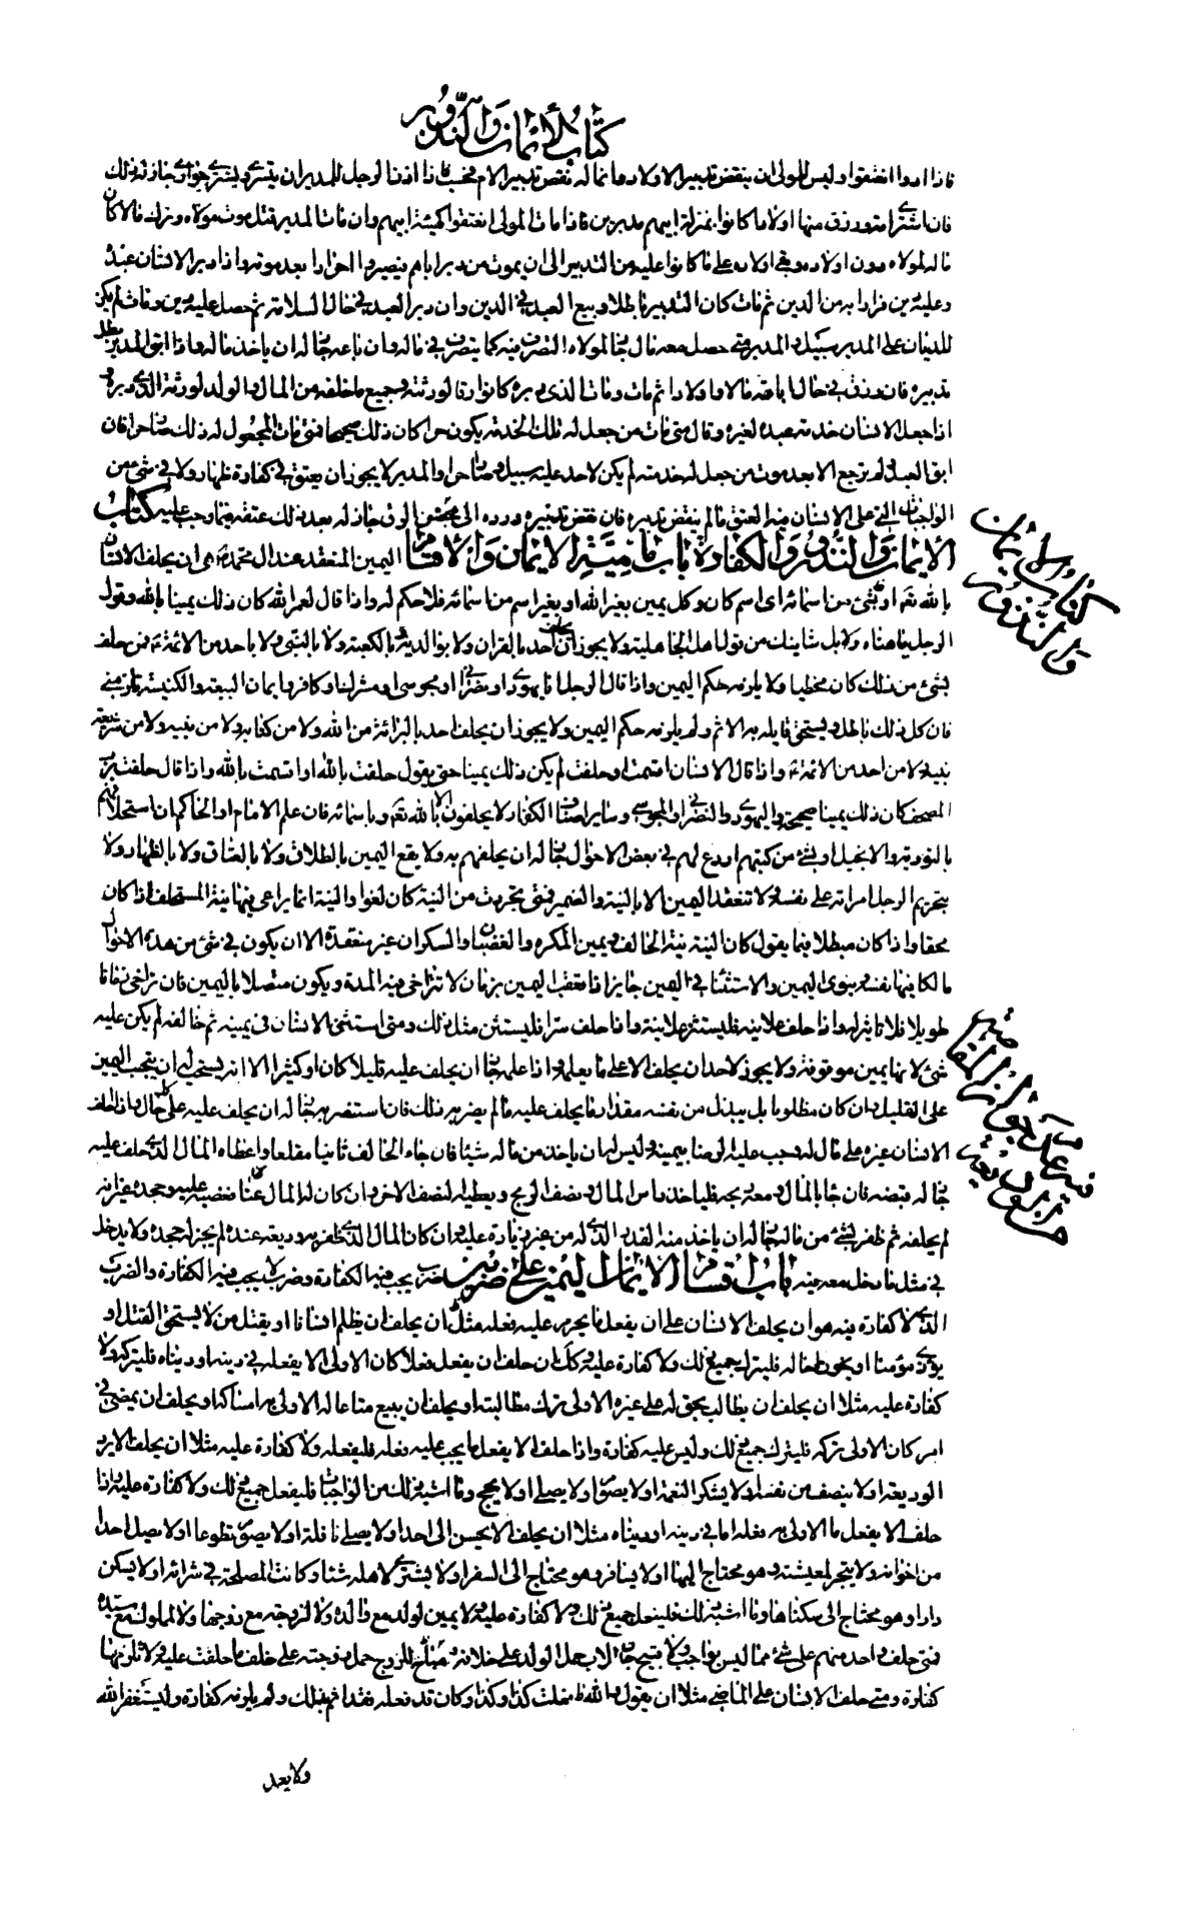 كتاب الأيمان والنذور
فاذا ادوا انعتقوا وليس للمولى ان ينقض تدبير الاولاد وانما له نقض تدبير الام فحسب فاذا اذن الرجل للمدبر ان يتسرى ويشترى جوارى جاز له ذلك
فان اشترى امة ورزق منها اولادا كانوا بمنزلة ابيهم مدبرين فاذا مات المولى انعتقوا كهيئة ابيهم وان مات المدبر قبل موت مولاه وترك مالا كان
ماله لمولاه دون اولاده وبقى اولاده على ما كانوا عليه من التدبير الى ان يموت من دبر اباهم فيصيروا احرارا بعد موته واذا دبر الانسان عبده
وعليه دين فرارا به من الدين ثم مات كان التدبير باطلا وبيع العبد في الدين وان دبر العبد في حال السلامة ثم حصل عليه دين ومات لم يكن
للديان على المدبر سبيل والمدبر متى حصل معه مال جاز لمولاه التصرف فيه كما يتصرف في ماله وان باعه جاز له ان ياخذ ماله واذا ابق المدبر بطل
تدبيره فان رزق في حال اباقه مالا واولادا ثم مات ومات الذي دبره كانوا رقا لورثته وجميع ما خلفه من المال والولد لورثة الذى دبره و
اذا جعل الانسان خدمة عبده لغيره وقال متى مات من جعل له تلك الخدمة يكون حرا كان ذلك صحيحا فمتى مات المجعول له ذلك صار حرا فان
ابق العبد ولم يرجع الا بعد موت من جعل له خدمته لم يكن لاحد عليه سبيل وصار حرا والمدبر لا يجوز ان يعتق في كفارة ظهار ولا في شئ من
الواجبات التي على الانسان فيه العتق ما لم ينقض تدبيره فان نقض تدبيره ورده الى محض الرق جاز له بعد ذلك عتقه فيما وجب عليه كتاب
الأيمان والنذور والكفارة باب ماهية الأيمان والاقسام اليمين المنعقد عند ال محمد هى ان يحلف الانسان
بالله تعه او بشئ من اسمائه اى اسم كان وكل يمين بغير الله او بغير اسم من اسمائه فلا حكم له واذا قال لعمر الله كان ذلك يمينا بالله وقول
الرجل يا هناه ولا بل شانيك من قول اهل الجاهلية ولا يجوز ان يحلف احد بالقران ولا بوالديه ولا بالكعبة ولا بالنبى ولا باحد من الائمة فمن حلف
بشئ من ذلك كان مخطيا ولا يلزمه حكم اليمين واذا قال الرجل انا يهودى او نصرانى او مجوسى او مشرك او كافر وايمان البيعة والكنيسة تلزمنى
فان كل ذلك باطل ويستحق قايله به الاثم ولم يلزمه حكم اليمين ولا يجوز ان يحلف احد بالبرائة من الله ولا من كتابه ولا من نبيه ولا من شريعة
نبيه ولا من احد من الائمة واذا قال الانسان اقسمت او حلفت لم يكن ذلك يمينا حتى يقول حلفت بالله او اقسمت بالله واذا قال حلفت برب
المصحف كان ذلك يمينا صحيحة واليهودى والنصرانى والمجوسى وساير اصناف الكفار لا يحلفون الا بالله تعه وباسمائه فان علم الامام او الحاكم ان استحلافهم
بالتورية والانجيل او بشئ من كتبهم اردع لهم في بعض الاحوال جاز له ان يحلفهم به ولا يقع اليمين بالطلاق ولا بالعتاق ولا بالظهار ولا
بتحريم الرجل امراته على نفسه ولا تنعقد اليمين الا بالنية والضمير فمتى تجردت من النية كان لغوا والنية انما يراعى فيها نية المستحلف اذا كان
محقا واذا كان مبطلا فيما يقول كان النية نية الحالف ويمين المكره والغضبان والسكران غير منعقدة الا ان يكون في شئ من هذه الاحوال
مالكا فيها نفسه ينوى اليمين والاستثناء في اليمين جايز اذا تعقب اليمين بزمان لا تراخى فيه المدة ويكون متصلا باليمين فان تراخى زمانا
طويلا فلا تاثير له واذا حلف علانية فليستثن علانية واذا حلف سرا فليستثن مثل ذلك ومتى استثنى الانسان في يمينه ثم خالفه لم يكن عليه
شئ لانها يمين موقوفة ولا يجوز لاحد ان يحلف الا على ما يعلمه واذا علمه جاز ان يحلف عليه قليلا كان او كثيرا الا انه يستحب له ان يتجنب اليمين
على القليل وان كان مظلوما بل يبذل من نفسه مقدار ما يحلف عليه ما لم يضر به ذلك فان استضر به جاز له ان يحلف عليه على كل حال واذا حلف
الانسان غيره على مال له وجب عليه الرضا بيمينه وليس له ان ياخذ من ماله شيئا فان جاء الحالف ثانيا مقلعا واعطاه المال الذى حلف عليه
جاز له قبضه فان جاء بالمال ومعه ربحه فلياخذ راس المال ونصف الربح ويعطيه النصف الاخر وان كان له المال عنده فغصبه عليه وجحده غير انه
لم يحلفه ثم ظفر بشئ من ماله جاز له ان ياخذ منه القدر الذى له من غير زيادة عليه وان كان المال الذى ظفر به وديعة عنده لم يجز له جحده ولا يدخل
في مثل ما دخل معه فيه باب اقسام الأيمان اليمين على ضربين ضرب يجب فيه الكفارة وضرب لا يجب فيه الكفارة والضرب
الذى لا كفارة فيه هو ان يحلف الانسان على ان يفعل ما يحرم عليه فعله مثل ان يحلف ان يظلم انسانا او يقتل من لا يستحق القتل او
يوذى مؤمنا او يخون اخاله فليترك جميع ذلك ولا كفارة عليه وكذلك ان حلف ان يفعل فعلا كان الاولى الا يفعله في دينه او دنياه فليتركه ولا
كفارة عليه مثلا ان يحلف ان يطالب بحق له على غيره الاولى ترك مطالبته او يحلف ان يبيع متاعا له الاولى به امساكه او يحلف ان يمضى في
امر كان الاولى تركه فليترك جميع ذلك وليس عليه كفارة واذا حلف الا يفعل ما يجب عليه فعله فليفعله ولا كفارة عليه مثلا ان يحلف الا يرد
الوديعة او لا ينصف من نفسه او لا يشكر النعمة او لا يصوم او لا يصلى او لا يحج وما اشبه ذلك من الواجبات فليفعل جميع ذلك ولا كفارة عليه واذا
حلف الا يفعل ما الاولى به فعله اما في دينه او دنياه مثلا ان يحلف الا يحسن الى احد او لا يصلى نافلة او لا يصوم تطوعا او لا يصل احدا
من اخوانه ولا يتجر لمعيشته وهو محتاج اليها او لا يسافر وهو محتاج الى السفر او لا يشترى لاهله شيئا وكانت المصلحة في شرائه او لا يسكن
دارا وهو محتاج الى سكناها وما اشبه ذلك فليفعل جميع ذلك ولا كفارة عليه ولا يمين لولد مع والده ولا لزوجة مع زوجها ولا لمملوك مع سيده
فمتى حلف واحد منهم على شئ مما ليس بواجب ولا قبيح جاز للاب حمل الولد على خلافه وساغ للزوج حمل زوجته على خلاف ما حلفت عليه ولا تلزمها
كفارة ومتى حلف الانسان على الماضى مثلا ان يقول والله ما فعلت كذا وكذا وكان قد فعله فقد اثم بذلك ولم يلزمه كفارة وليستغفر الله
ولا يعد
كتاب الأيمان
والنذور